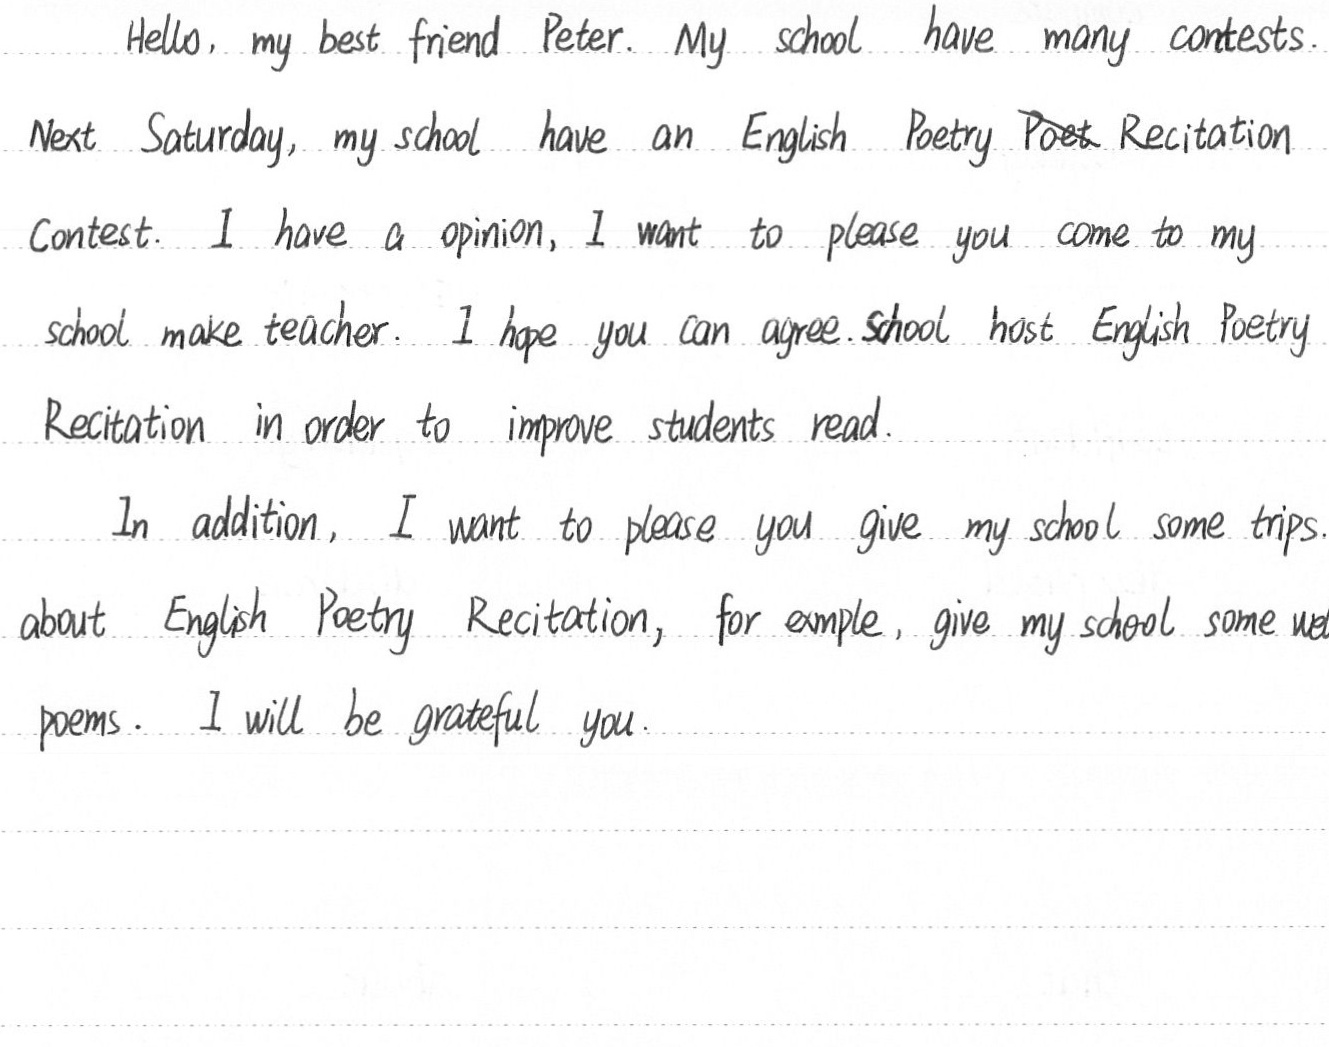 Hello, my best friend Peter. My school have many contests.
Next Saturday, my school have an English Poetry Poet Recitation
Contest. I have a opinion, I want to please you come to my
school make teacher. I hope you can agree. School host English Poetry
Recitation in order to improve students read.
In addition, I want to please you give my school some trips.
about English Poetry Recitation, for exmple, give my school some
poems. I will be grateful you.